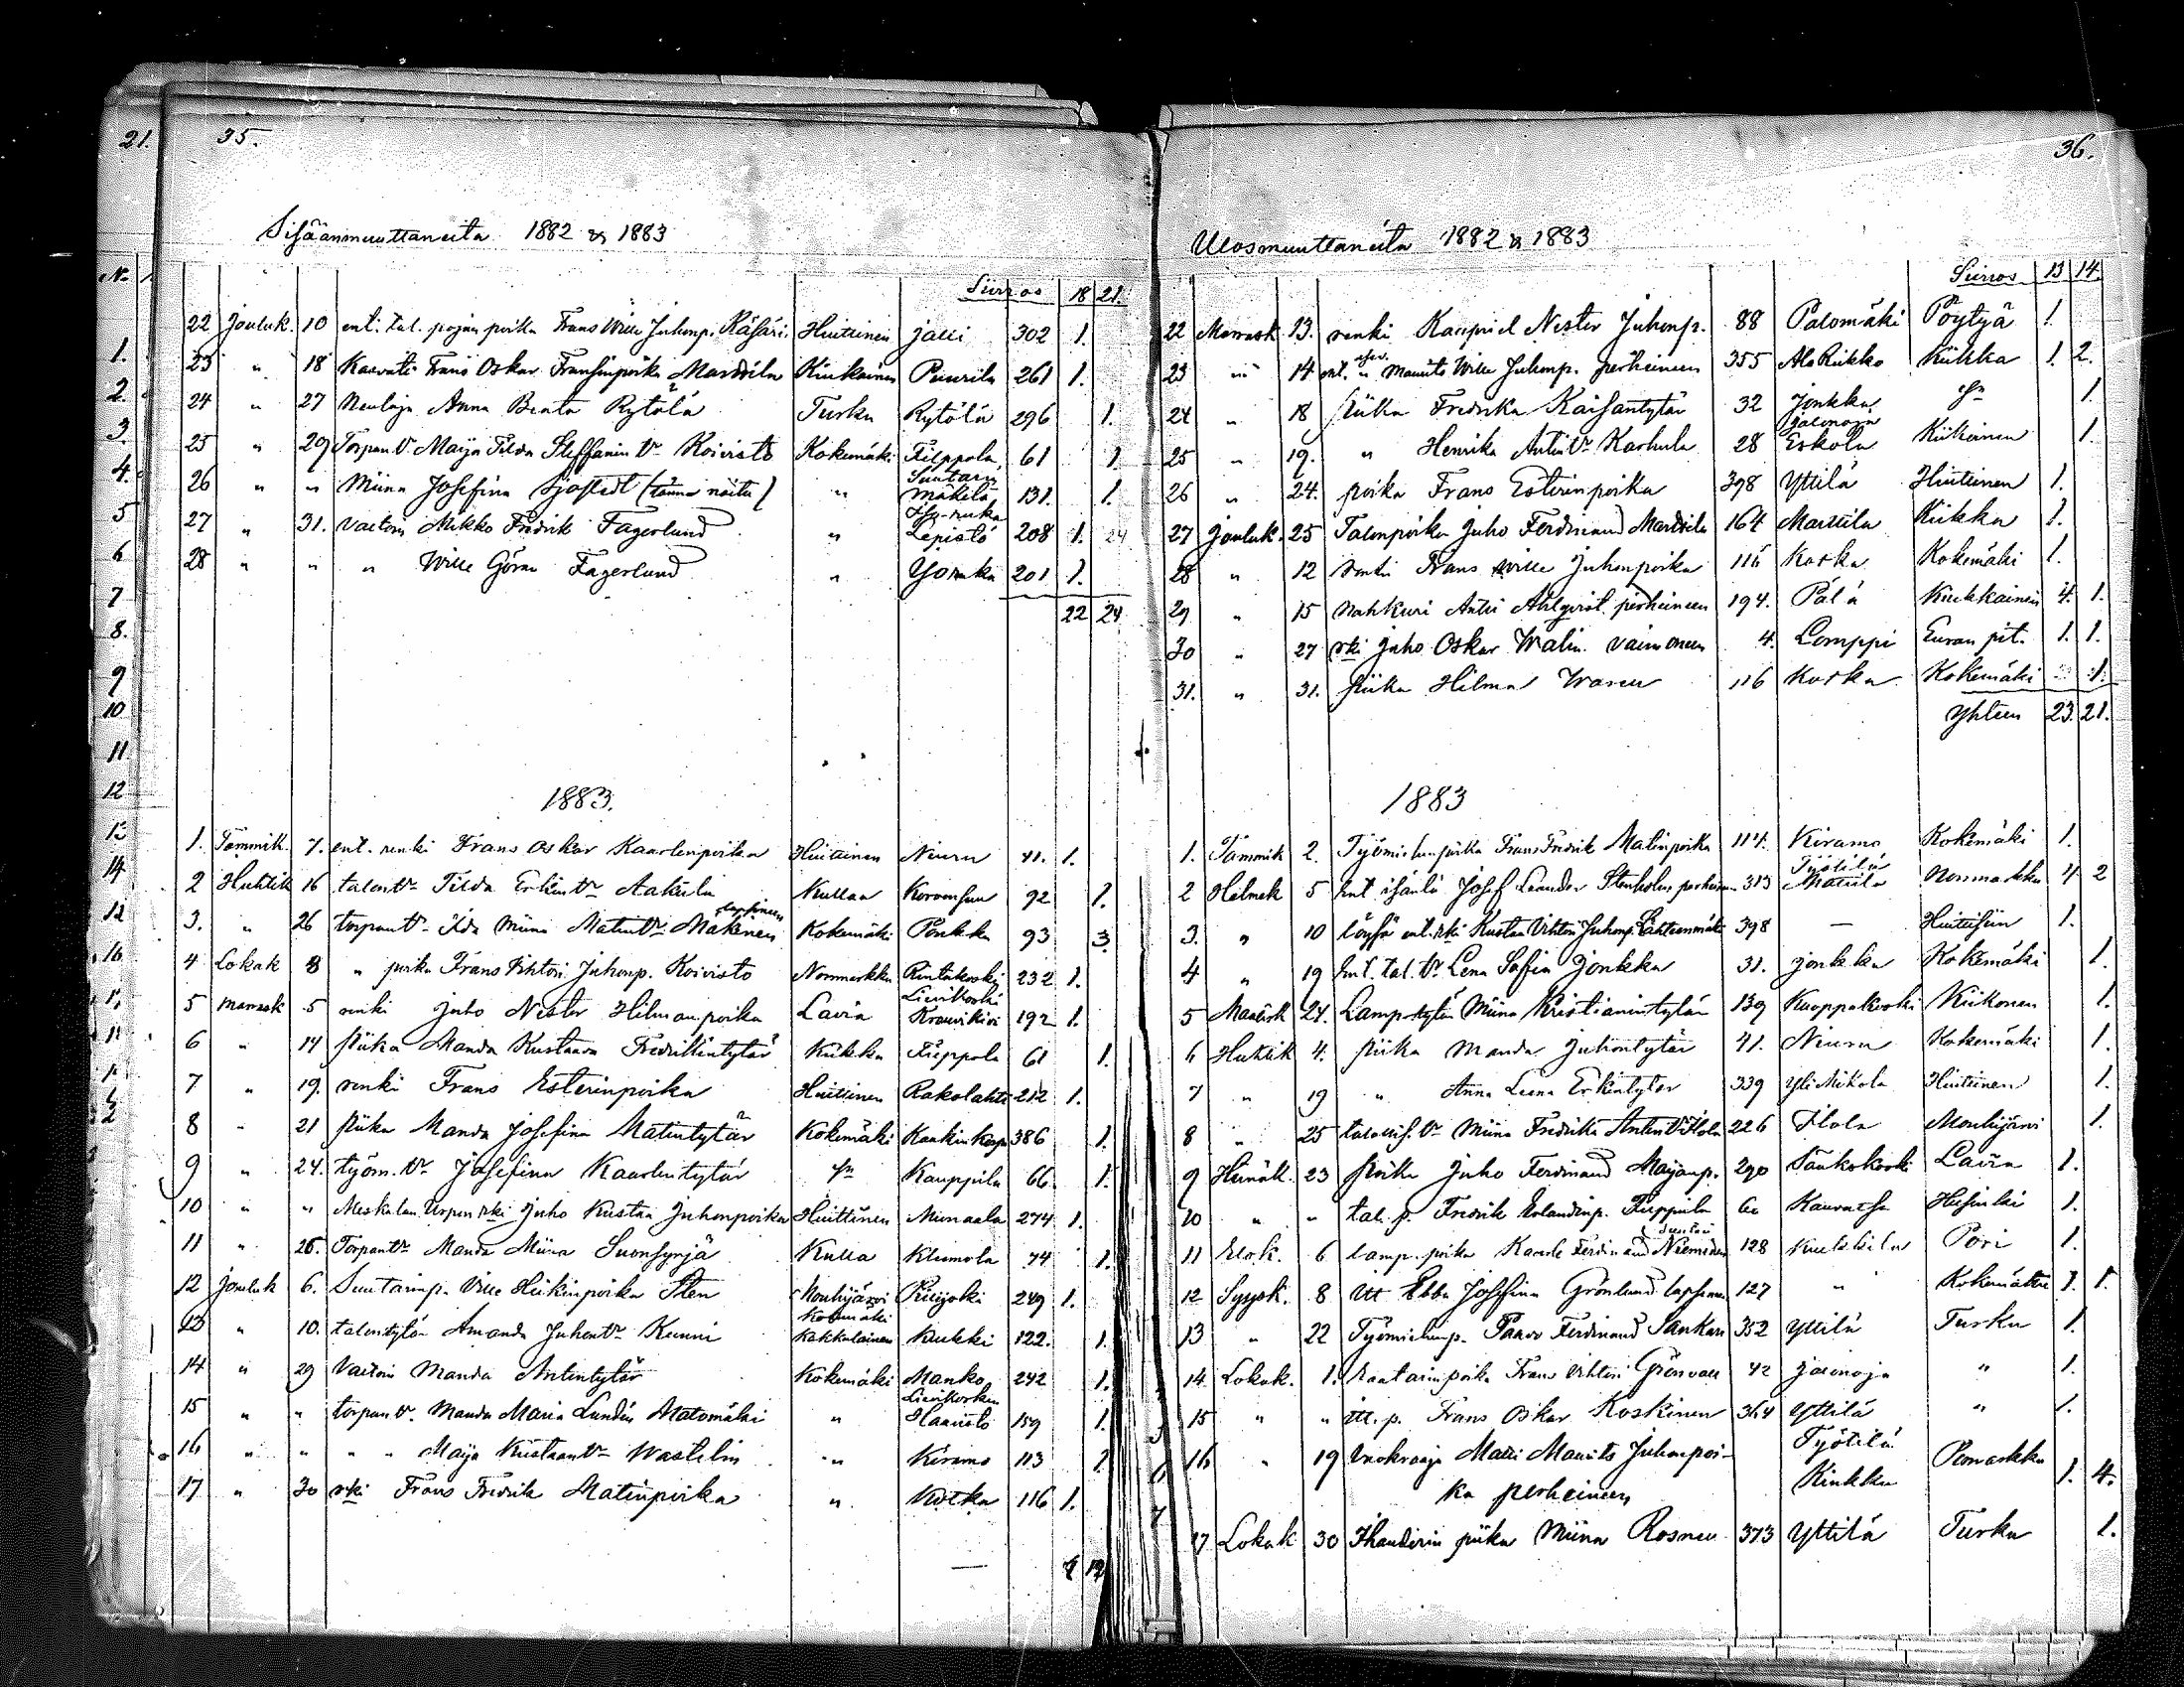 21. 35.
Sisäänmuuttaneita 1882 & 1883
Siirros 18 21.
22 Jouluk. 10 ent. tal. pojan poika Frans Wille Juhonp. Käsäri. Huittinen Jalli 302 1.
23 " 18 Kasvatti Frans Oskar Fransinpoika Marttila Kiukainen Puurila 261 1.
24 " 27 Neuloja Anna Beata Rytölä Turku Rytölä 296 1.
25 " 29 Torpan tr Maija Tilda Steffanin tr Koivisto Kokemäki Fieppola, 61 1
26 " " Miina Josefina Sjöstedt (tänne näitu) " Suutarin Mäkelä 131. 1.
27 " 31. Vaetori Mikko Fredrik Fagerlund " Lepistö 208 1. 24
28 " " " Wille Göran Fagerlund " Yonka 201 1.
22 24
1883.
1. Tammik. 7. ent. renki Frans Oskar Kaarlenpoika Huittinen Niuru 41. 1.
2 Huhtik 16 talon tr Tilda Erkin tr Aakula Kullaa 92 1.
3. " 26 torpan tr Ida Miina Matin tr Mäkinen lapsineen Kokemäki Penkka 93 3
4 Lokak 8 " poika Frans Vihtori Juhonp. Koivisto Normarkku Rintakoski 232 1.
5 Marrask 5 renki Juho Nestor Hilmanpoika Lavia Lievikoski Krouvikivi 192 1.
6 " 14 piika Manda Kustaava Fredrikintytär Kiikka Fieppola 61 1.
7 " 19. renki Frans Esterinpoika Huittinen Rakolahti 212 1.
8 " 21 piika Manda Josefina Matintytär Kokemäki 386 1.
9 " 24. työm. tr Josefina Kaarlentytär Kauppila 66. 1.
10 " " rki Juho Kustaa Juhonpoika Huittinen Munaala 274 1.
11 " 26. Torpan tr Manda Miina Suonsyrjä Kulla Klumola 74 1.
12 Jouluk 6. Suutarinp. Ville Heikinpoika Sten Mouhijärvi Ruijoki 249 1.
13 " 10. talontytär Amanda Juhon tr Kunni Kokemäki Kakkulainen Kukki 122. 1.
14 " 29 Vaetori Manda Antintytär Kokemäki Manko 242 1.
15 " " torpan tr. Manda Maria Lundén Matomäki " Lievikosken Haavisto 159 1.
16 " " " " Maija Kustaan tr Wastelin " Kiramo 113 1
17 " 30 rki Frans Fredrik Matinpoika " Kotka 116 1.
36.
Ulosmuuttaneita 1882 & 1883
Siirros 13 14.
22 Marrask 13. renki Kaapriel Nestor Juhonp. 88 Palomäki Pöytyä 1.
23 " 14 ent. Maunts Wille Juhonp. perheineen 355 Ala Rikko Kiikka 1. 2.
24 " 18 piika Fredrika Kaisantytär 32 Jonkka 1.
25 " 19. " Henrika Antin tr Karhula 28 Jalonoja Eskola Kiikoinen 1.
26 " 24. poika Frans Esterinpoika 398 Yttilä Huittinen 1.
27 Jouluk. 25 Talonpoika Juho Ferdinand Marttila 164 Marttila Kiikka 1.
28 " 12 renki Frans Wille Juhonpoika 116 Kotka Kokemäki 1.
29 " 15 Nahkuri Antti Ahlqvist perheineen 194. Pälä Kiukkainen 4. 1.
30 " 27 rki Juho Oskar Walin vaimoneen 4. Lomppi Euran pit. 1. 1.
31. " 31. piika Hilma Waren 116 Kotka Kokemäki 1.
Yhteen 23. 21.
1883
1. Tammik 2. Työmiehenpoika Frans Fredrik Matinpoika 114. Kiramo Kokemäki 1.
2 Helmik 5 ent isäntä Josef Leander Stenholm 313 Työtilä Mattila Normarkku 4 2
3. " 10 löysä ent. rki Kustaa Vihtori Juhonp. Lähteenmäki 398 — Huittisiin 1.
4 " 19 ent. tal. tr Lena Sofia Jonkka 31. Jonkka Kokemäki 1.
5 Maalisk 24. Lamp.tytär Miina Kristianintytär 139 Kuoppakoski Kiikonen 1.
6 Huhtik 4. piika Manda Juhontytär 41. Niuru Kokemäki 1.
7 " 19 " Anna Leena Erkintytär 339 Yli Mikola Huittinen 1.
8 " 25 Miina Fredrika Antin tr Ilola 226 Ilola Mouhijärvi 1.
9 Heinäk. 23 poika Juho Ferdinand Maijanp. 290 Sääkskoski Lavia 1.
10 " " tal. p. Fredrik Eolandinp. Fieppula 60 Kauvatsa Helsinki 1.
11 Elok. 6 lamp. poika Kaarle Ferdinand Nieminen 128 Kukkila Pori 1.
12 Syysk. 8 itt Ebba Josefina Grönlund lapsineen 127 " Kokemäkin 1. 1.
13 " 22 Työmiehenp. Paavo Ferdinand Sankari 352 Yttilä Turku 1.
14 Lokak. 1. Raatarinpoika Frans Vihtori Grönvall 42 Jalonoja " 1.
15 " " itt. p. Frans Oskar Koskinen 364 Yttilä " 1.
16 " 19 Vuokraaja Matti Maunts Juhonpoi- Työtilä Pomarkku
ka perheineen Kiukku 1. 4.
17 Lokak 30 piika Miina Rosnen 373 Yttilä Turku 1.